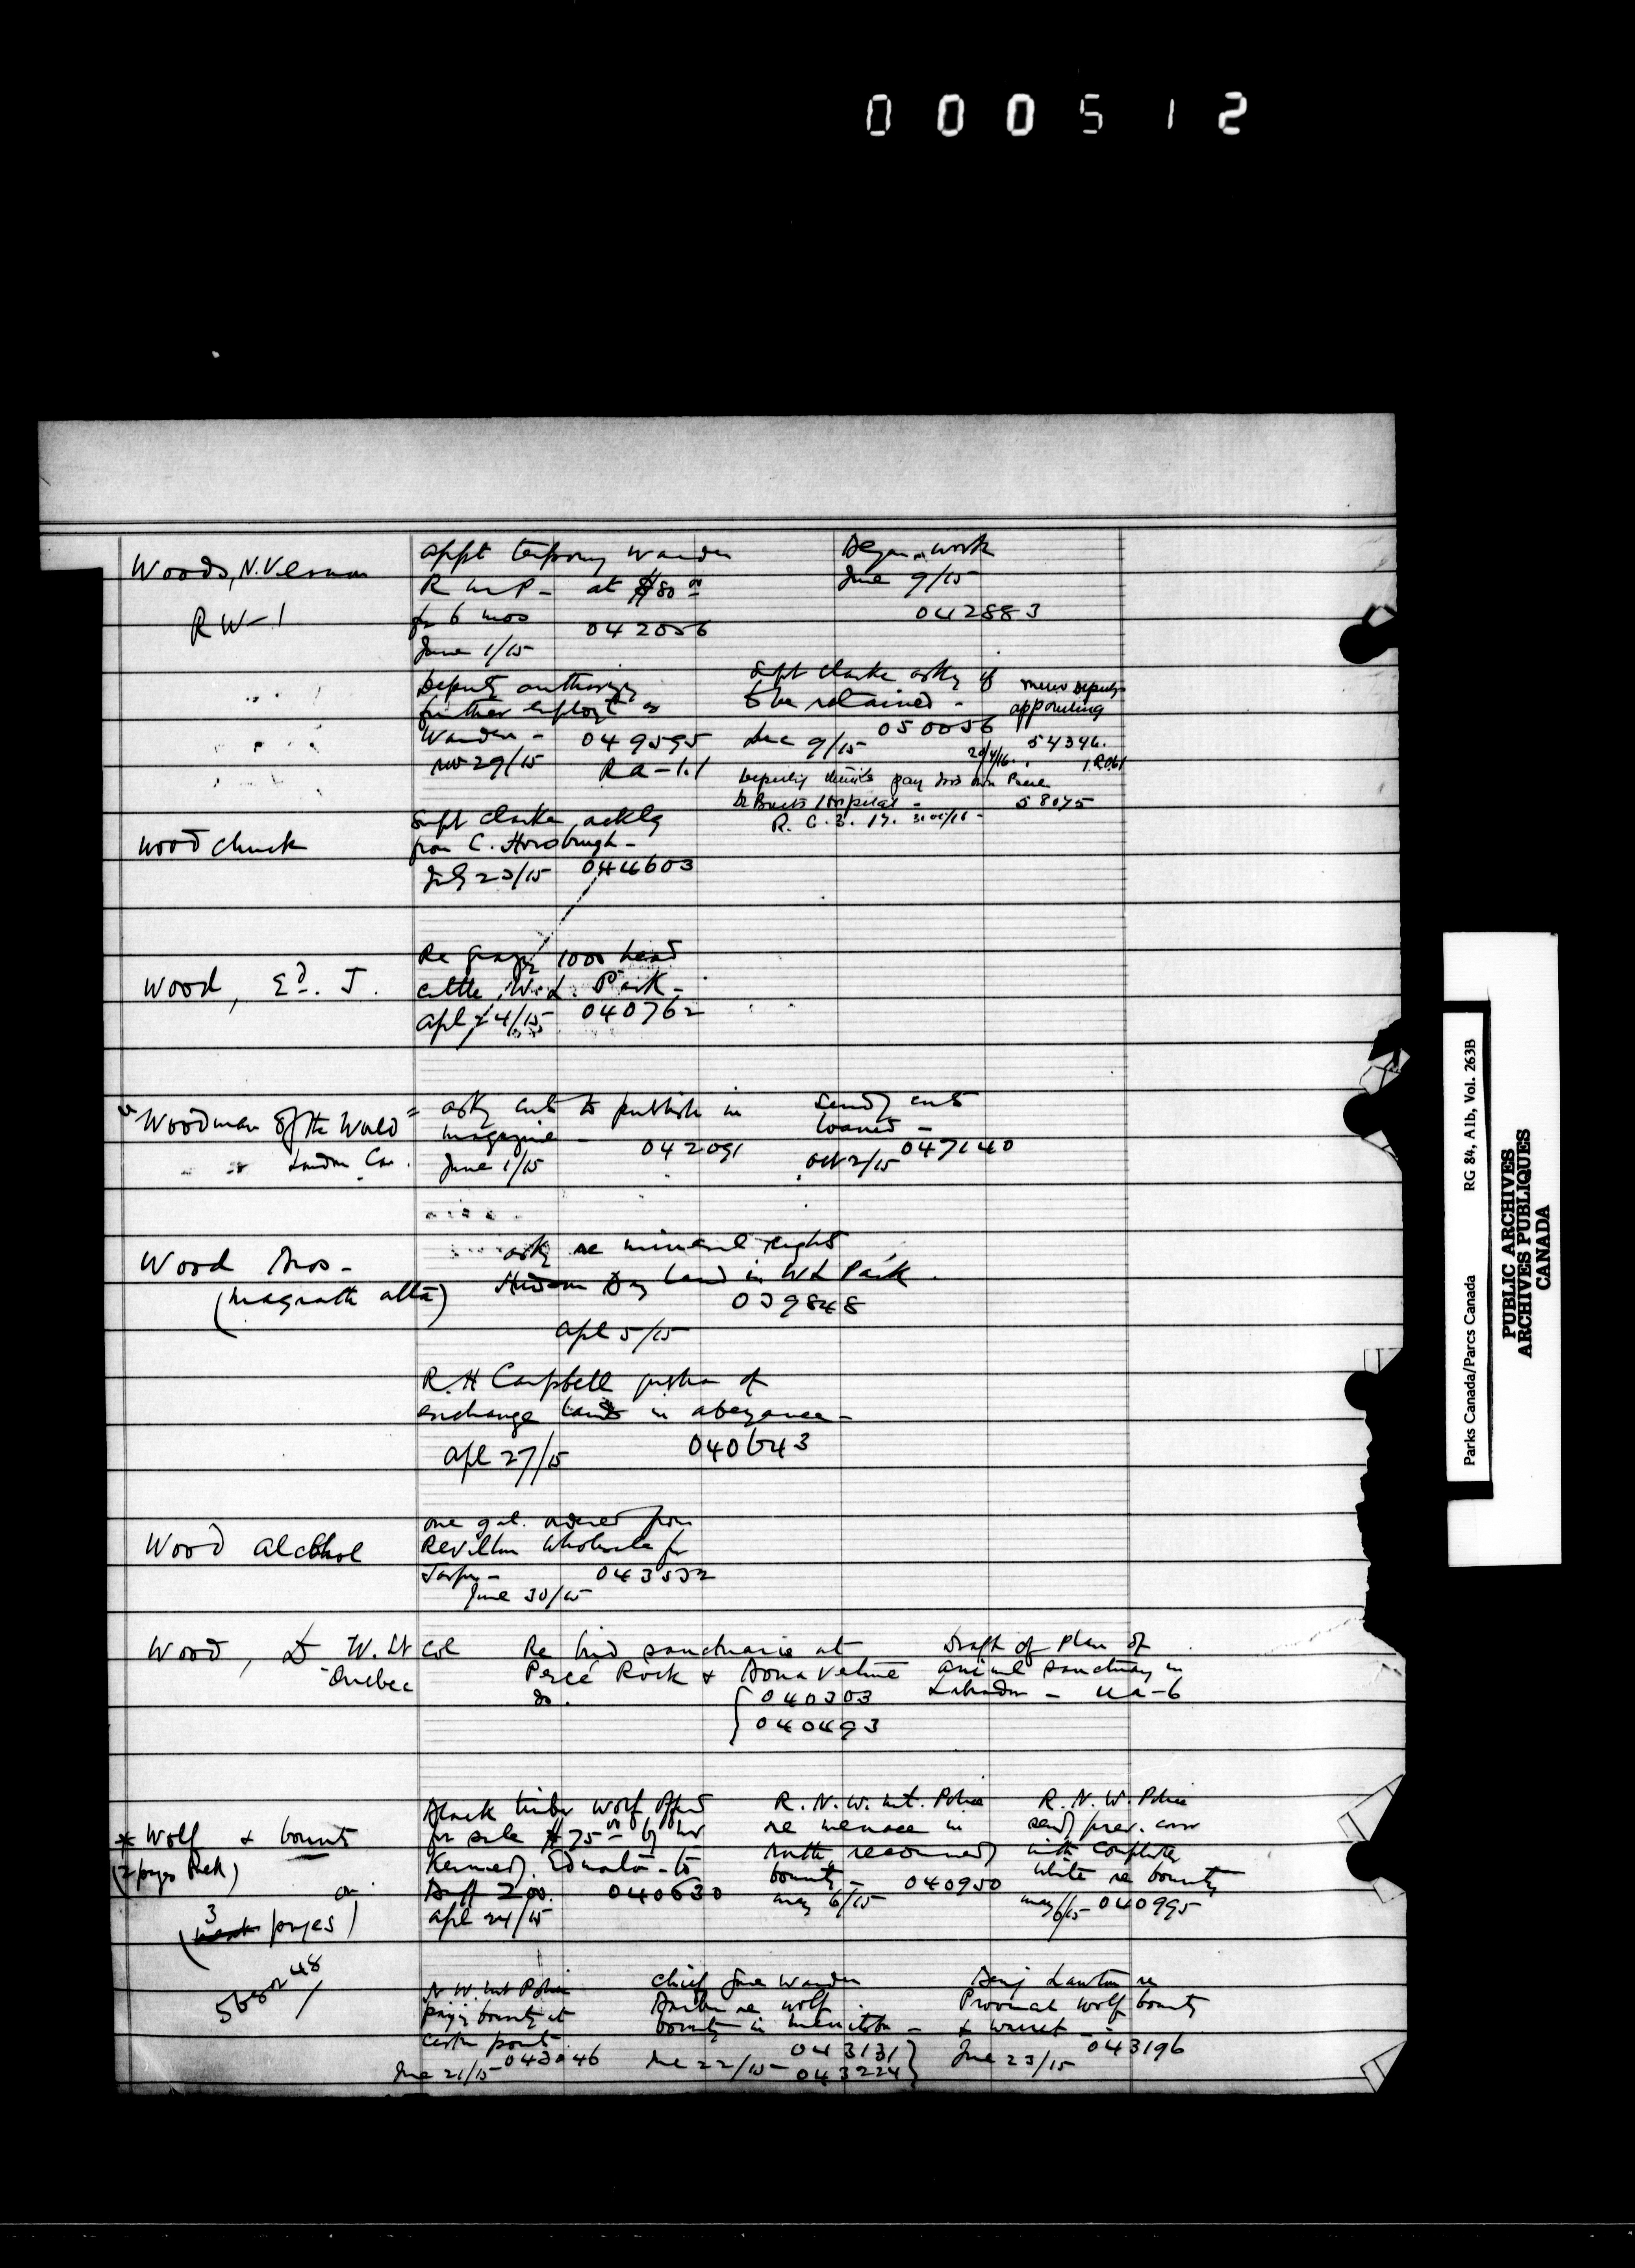 000512
Woods, N. Vernon
RW-1
appt temporary warden
R M P - at $80 00
for 6 mos
042056
June 1/15
Began work
June 9/15
042883
Deputy authorizing
further employt as
Warden - 049595
Nov 29/15 Ra-1.1
Supt Clarke asky if
to be retained -
050056
Dec 9/15
memo Deputy
appointing
54396.
20/4/16.
Deputy
Hospital - 58075
R. C. 3. 17.
Woodchuck
Supt Clarke ackly
from C. Horsbrugh -
July 23/15 044603
Wood, Ed. J.
Re grazg 1000 head
cattle, W.L. Park -
apl 24/15 040762
"Woodmen of the World"
" " London Can.
asky cuts to publish in
magazine -
042091
June 1/15
sendg cuts
loaned -
Oct 2/15 047140
Wood Bros -
(Magrath alta)
asky re mineral rights
Hudson Bay land in W L Park.
039848
apl 5/15
R. H Campbell question of
exchange lands in abeyance -
apl 27/15 040643
Wood alcohol
one gal. ordered from
Revillon Wholesale for
Jasper - 043532
June 30/15
Wood, W. Lt Col
Quebec
Re bird sanctuarie at
Percé Rock & Bonaventure
Is.
{040303
{040493
Draft of Plan of
animal sanctuary in
Labrador - Ua-6
* Wolf & bounty
(2 pages back)
or
(3 next pages)
Black timber wolf offered
for sale $75 00 by
Kennedy Edmonton - to
Banff 200. 040630
apl 24/15
R. N. W. Mt. Police
re menace in
north, recommendg
bounty - 040950
may 6/15
R. N. W. Police
sendg prev. corr
with Comptroller
White re bounty
may 6/15 040995
N W. Mt Police
payg bounty at
certn points
June 21/15 043046
Chief Game Warden
Barber re wolf
bounty in Manitoba -
043131}
June 22/15 - 043224}
Benj Lawton re
Provincial wolf bounty
& warrant -
June 23/15 043196
Parks Canada/Parcs Canada RG 84, A1b, Vol. 263B
PUBLIC ARCHIVES
ARCHIVES PUBLIQUES
CANADA